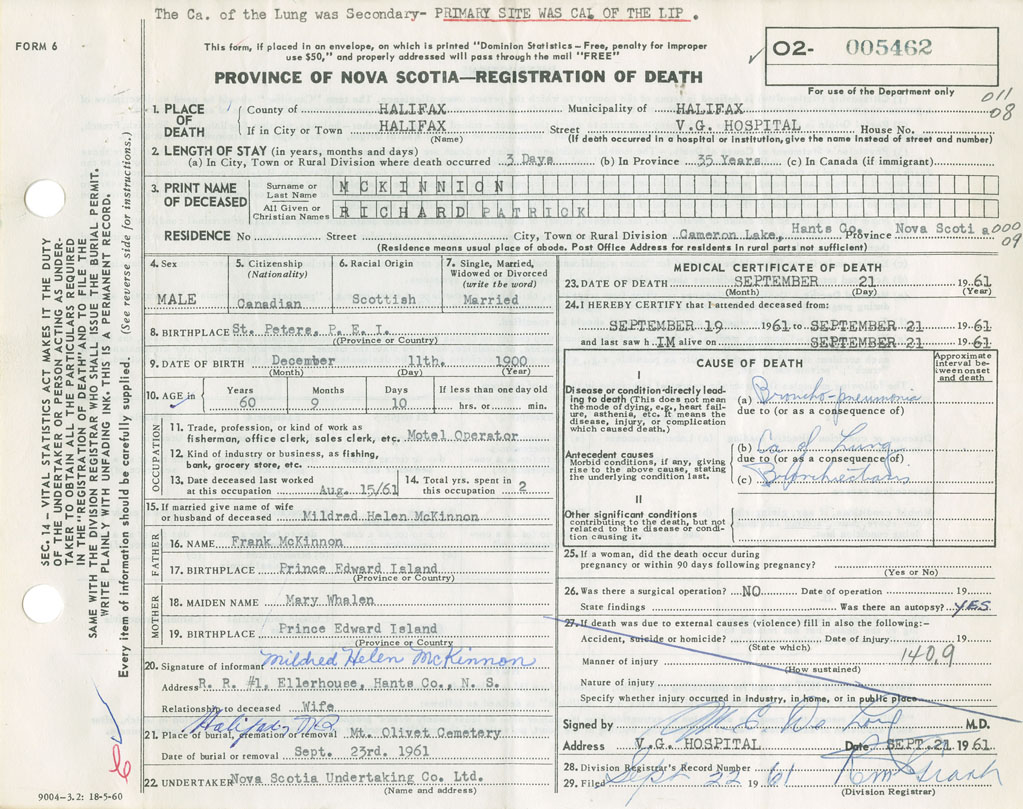 The Ca. of the Lung was Secondary- PRIMARY SITE WAS CAL OF THE LIP .
FORM 6
This form, if placed in an envelope, on which is printed "Dominion Statistics – Free, penalty for improper
use $50," and properly addressed will pass through the mail "FREE"
PROVINCE OF NOVA SCOTIA—REGISTRATION OF DEATH
O2- 005462
For use of the Department only
011
08
1. PLACE OF DEATH
County of HALIFAX Municipality of HALIFAX
If in City or Town HALIFAX Street V.G. HOSPITAL House No.
(Name) (If death occurred in a hospital or institution, give the name instead of street and number)
2. LENGTH OF STAY (in years, months and days)
(a) In City, Town or Rural Division where death occurred 3 Days (b) In Province 35 Years (c) In Canada (if immigrant)
3. PRINT NAME OF DECEASED
Surname or Last Name MCKINNION
All Given or Christian Names RICHARD PATRICK
RESIDENCE No Street City, Town or Rural Division Cameron Lake, Hants Co. Province Nova Scotia
000
09
(Residence means usual place of abode. Post Office Address for residents in rural parts not sufficient)
4. Sex MALE
5. Citizenship (Nationality) Canadian
6. Racial Origin Scottish
7. Single, Married, Widowed or Divorced (write the word) Married
8. BIRTHPLACE St. Peters, P. E. I.
(Province or Country)
9. DATE OF BIRTH December 11th. 1900
(Month) (Day) (Year)
10. AGE in Years 60 Months 9 Days 10 If less than one day old hrs. or min.
OCCUPATION
11. Trade, profession, or kind of work as
fisherman, office clerk, sales clerk, etc. Motel Operator
12. Kind of industry or business, as fishing,
bank, grocery store, etc.
13. Date deceased last worked
at this occupation Aug. 15/61
14. Total yrs. spent in
this occupation 2
15. If married give name of wife
or husband of deceased Mildred Helen McKinnon
FATHER
16. NAME Frank McKinnon
17. BIRTHPLACE Prince Edward Island
(Province or Country)
MOTHER
18. MAIDEN NAME Mary Whalen
19. BIRTHPLACE Prince Edward Island
(Province or Country
20. Signature of informant Mildred Helen McKinnon
Address R. R. #1, Ellerhouse, Hants Co., N. S.
Relationship to deceased Wife
Halifax, N.S.
21. Place of burial, cremation or removal Mt. Olivet Cemetery
Date of burial or removal Sept. 23rd. 1961
22. UNDERTAKER Nova Scotia Undertaking Co. Ltd.
(Name and address)
MEDICAL CERTIFICATE OF DEATH
23. DATE OF DEATH SEPTEMBER 21 1961
(Month) (Day) (Year)
24. I HEREBY CERTIFY that I attended deceased from:
SEPTEMBER 19 1961 to SEPTEMBER 21 1961
and last saw h IM alive on SEPTEMBER 21 1961
CAUSE OF DEATH
Approximate interval between onset and death
I
Disease or condition directly leading to death (This does not mean
the mode of dying, e.g., heart failure, asthenia, etc. It means the
disease, injury, or complication
which caused death.)
(a) Broncho-pneumonia
due to (or as a consequence of)
Antecedent causes
Morbid conditions, if any, giving
rise to the above cause, stating
the underlying condition last.
(b) Ca of Lung
due to (or as a consequence of)
(c) Bronchiectasis
II
Other significant conditions
contributing to the death, but not
related to the disease or condition causing it.
25. If a woman, did the death occur during
pregnancy or within 90 days following pregnancy?
(Yes or No)
26. Was there a surgical operation? NO Date of operation 19
State findings Was there an autopsy? YES
27. If death was due to external causes (violence) fill in also the following:-
Accident, suicide or homicide? Date of injury 19
(State which)
140.9
Manner of injury
(How sustained)
Nature of injury
Specify whether injury occurred in Industry, in home, or in public place
Signed by M.D.
Address V.G. HOSPITAL Date SEPT. 21 1961
28. Division Registrar's Record Number
29. Filed Sept 22 1961
(Division Registrar)
SEC. 14 – VITAL STATISTICS ACT MAKES IT THE DUTY
OF THE UNDERTAKER OR PERSON ACTING AS UNDERTAKER TO OBTAIN ALL THE PARTICULARS REQUIRED
IN THE "REGISTRATION OF DEATH" AND TO FILE THE
SAME WITH THE DIVISION REGISTRAR WHO SHALL ISSUE THE BURIAL PERMIT.
WRITE PLAINLY WITH UNFADING INK. THIS IS A PERMANENT RECORD.
Every item of information should be carefully supplied. (See reverse side for instructions.)
9004-3.2: 18-5-60